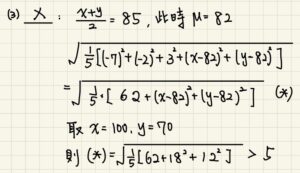 (3) X : (x+y)/2 = 85, 此時 M = 82
√(1/5[(-7)²+(-2)²+3²+(x-82)²+(y-82)²])
= √(1/5·[62+(x-82)²+(y-82)²]) (*)
取 x = 100, y = 70
則 (*) = √(1/5[62+18²+12²]) > 5